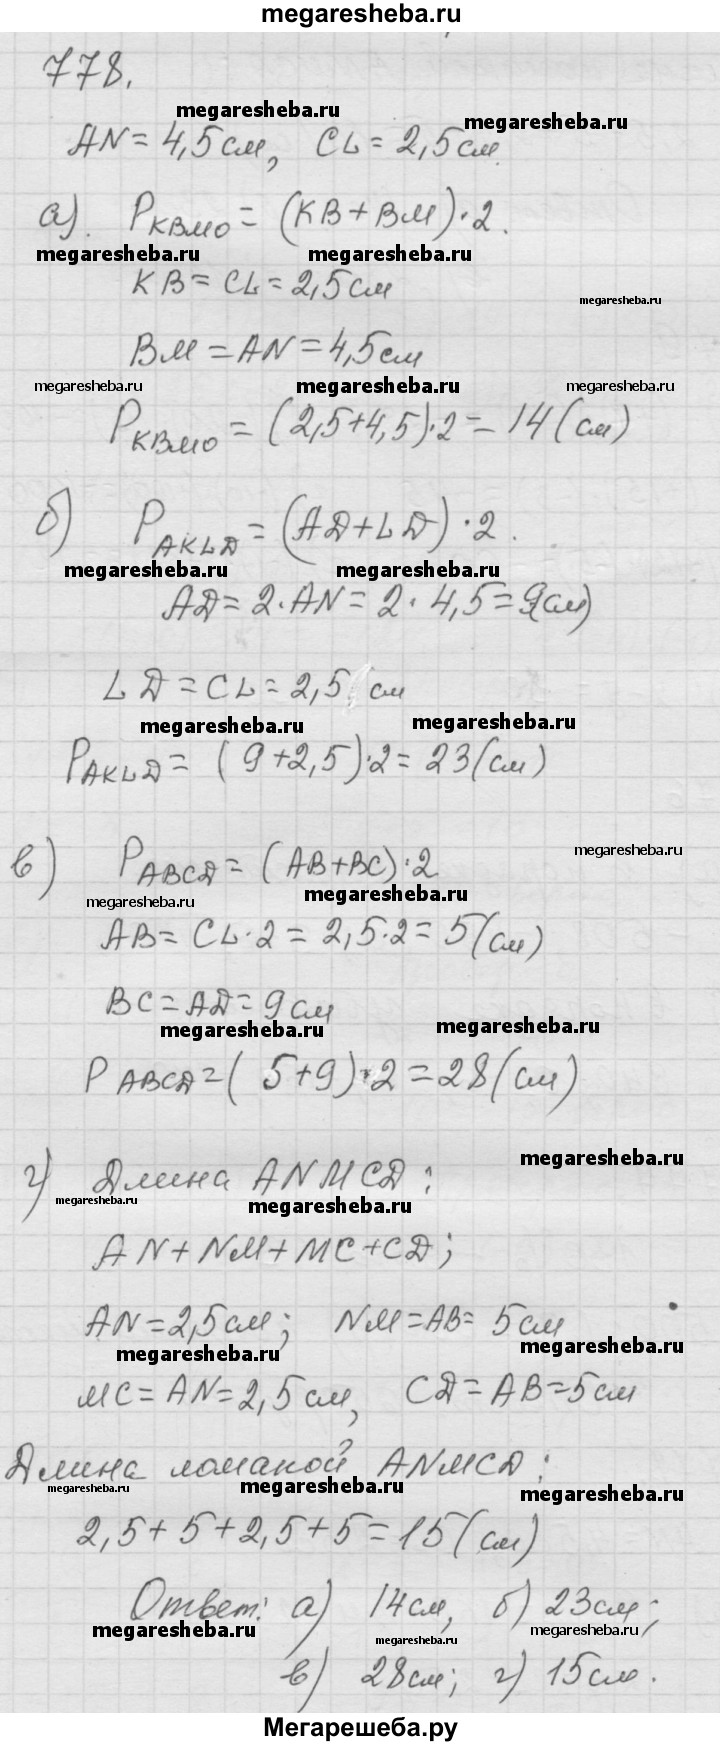 megaresheba.ru
778.
megaresheba.ru megaresheba.ru
AN = 4,5 см, CL = 2,5 см.
а). P_KBMO = (KB + BM) · 2.
megaresheba.ru megaresheba.ru
KB = CL = 2,5 см
megaresheba.ru
BM = AN = 4,5 см
megaresheba.ru megaresheba.ru megaresheba.ru
P_KBMO = (2,5 + 4,5) · 2 = 14 (см)
б) P_AKLD = (AD + LD) · 2.
megaresheba.ru megaresheba.ru
AD = 2 · AN = 2 · 4,5 = 9(см)
LD = CL = 2,5 см
megaresheba.ru megaresheba.ru
P_AKLD = (9 + 2,5) · 2 = 23 (см)
в) P_ABCD = (AB + BC) · 2
megaresheba.ru
megaresheba.ru megaresheba.ru
AB = CL · 2 = 2,5 · 2 = 5 (см)
BC = AD = 9 см
megaresheba.ru megaresheba.ru
P_ABCD = (5 + 9) · 2 = 28 (см)
г) Длина ANMCD:
megaresheba.ru
megaresheba.ru megaresheba.ru
AN + NM + MC + CD;
AN = 2,5 см; NM = AB = 5 см
megaresheba.ru megaresheba.ru
MC = AN = 2,5 см, CD = AB = 5 см
Длина ломаной ANMCD:
megaresheba.ru megaresheba.ru megaresheba.ru
2,5 + 5 + 2,5 + 5 = 15 (см)
Ответ: а) 14 см, б) 23 см;
megaresheba.ru megaresheba.ru megaresheba.ru
в) 28 см; г) 15 см.
Мегарешеба.ру